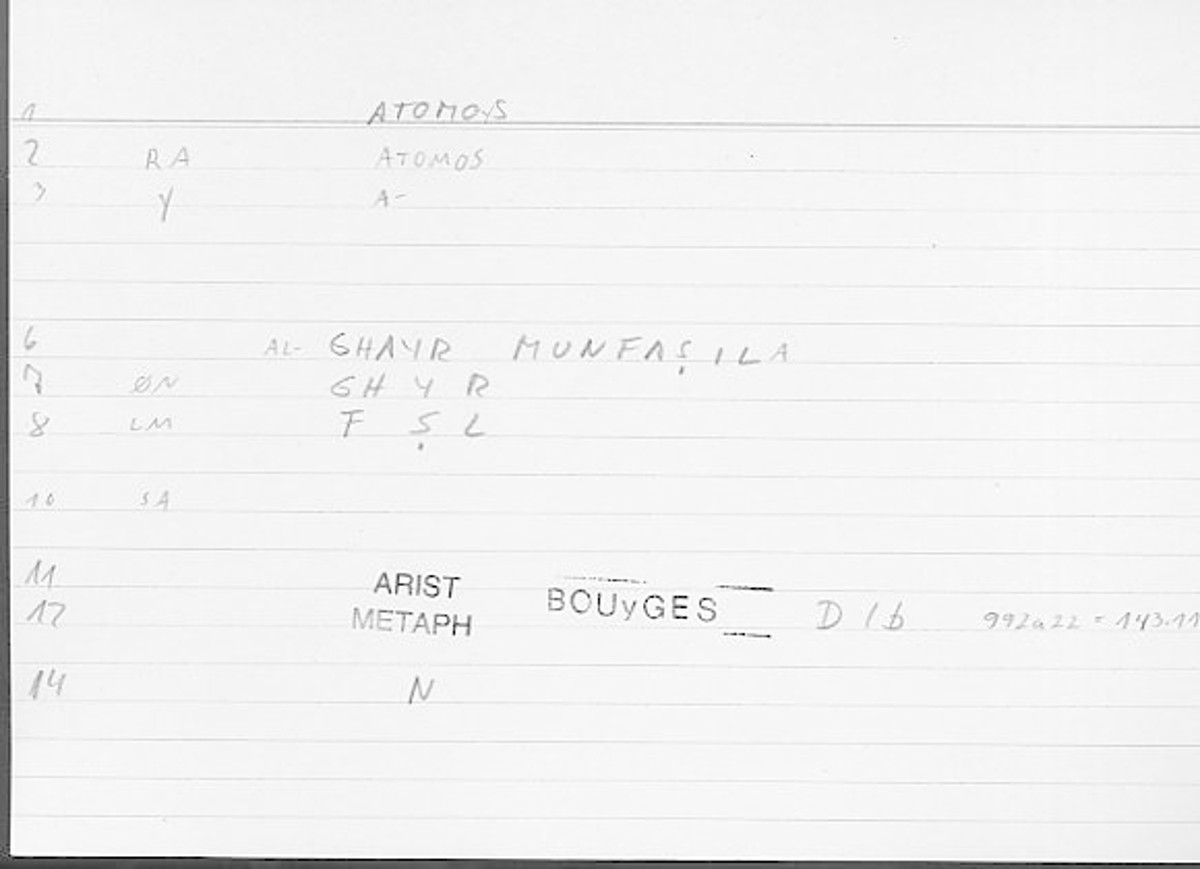 1 ATOMOYS
2 RA ATOMOS
3 Y A-
6 AL- GHAYR MUNFAṢILA
7 ØN GH Y R
8 LM F Ṣ L
10 SA
11 ARIST
12 METAPH BOUyGES D 1b 992a22 = 143.11
14 N